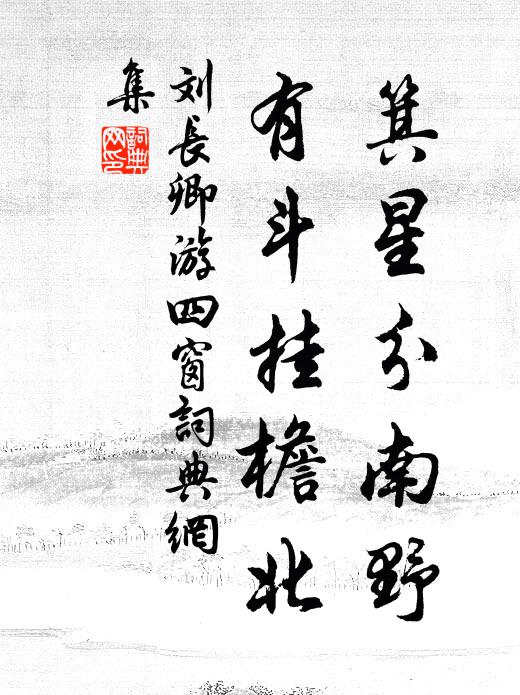 箕星分南野
有斗挂檐北
刘長卿游四窗詞典網
集
詞典網印